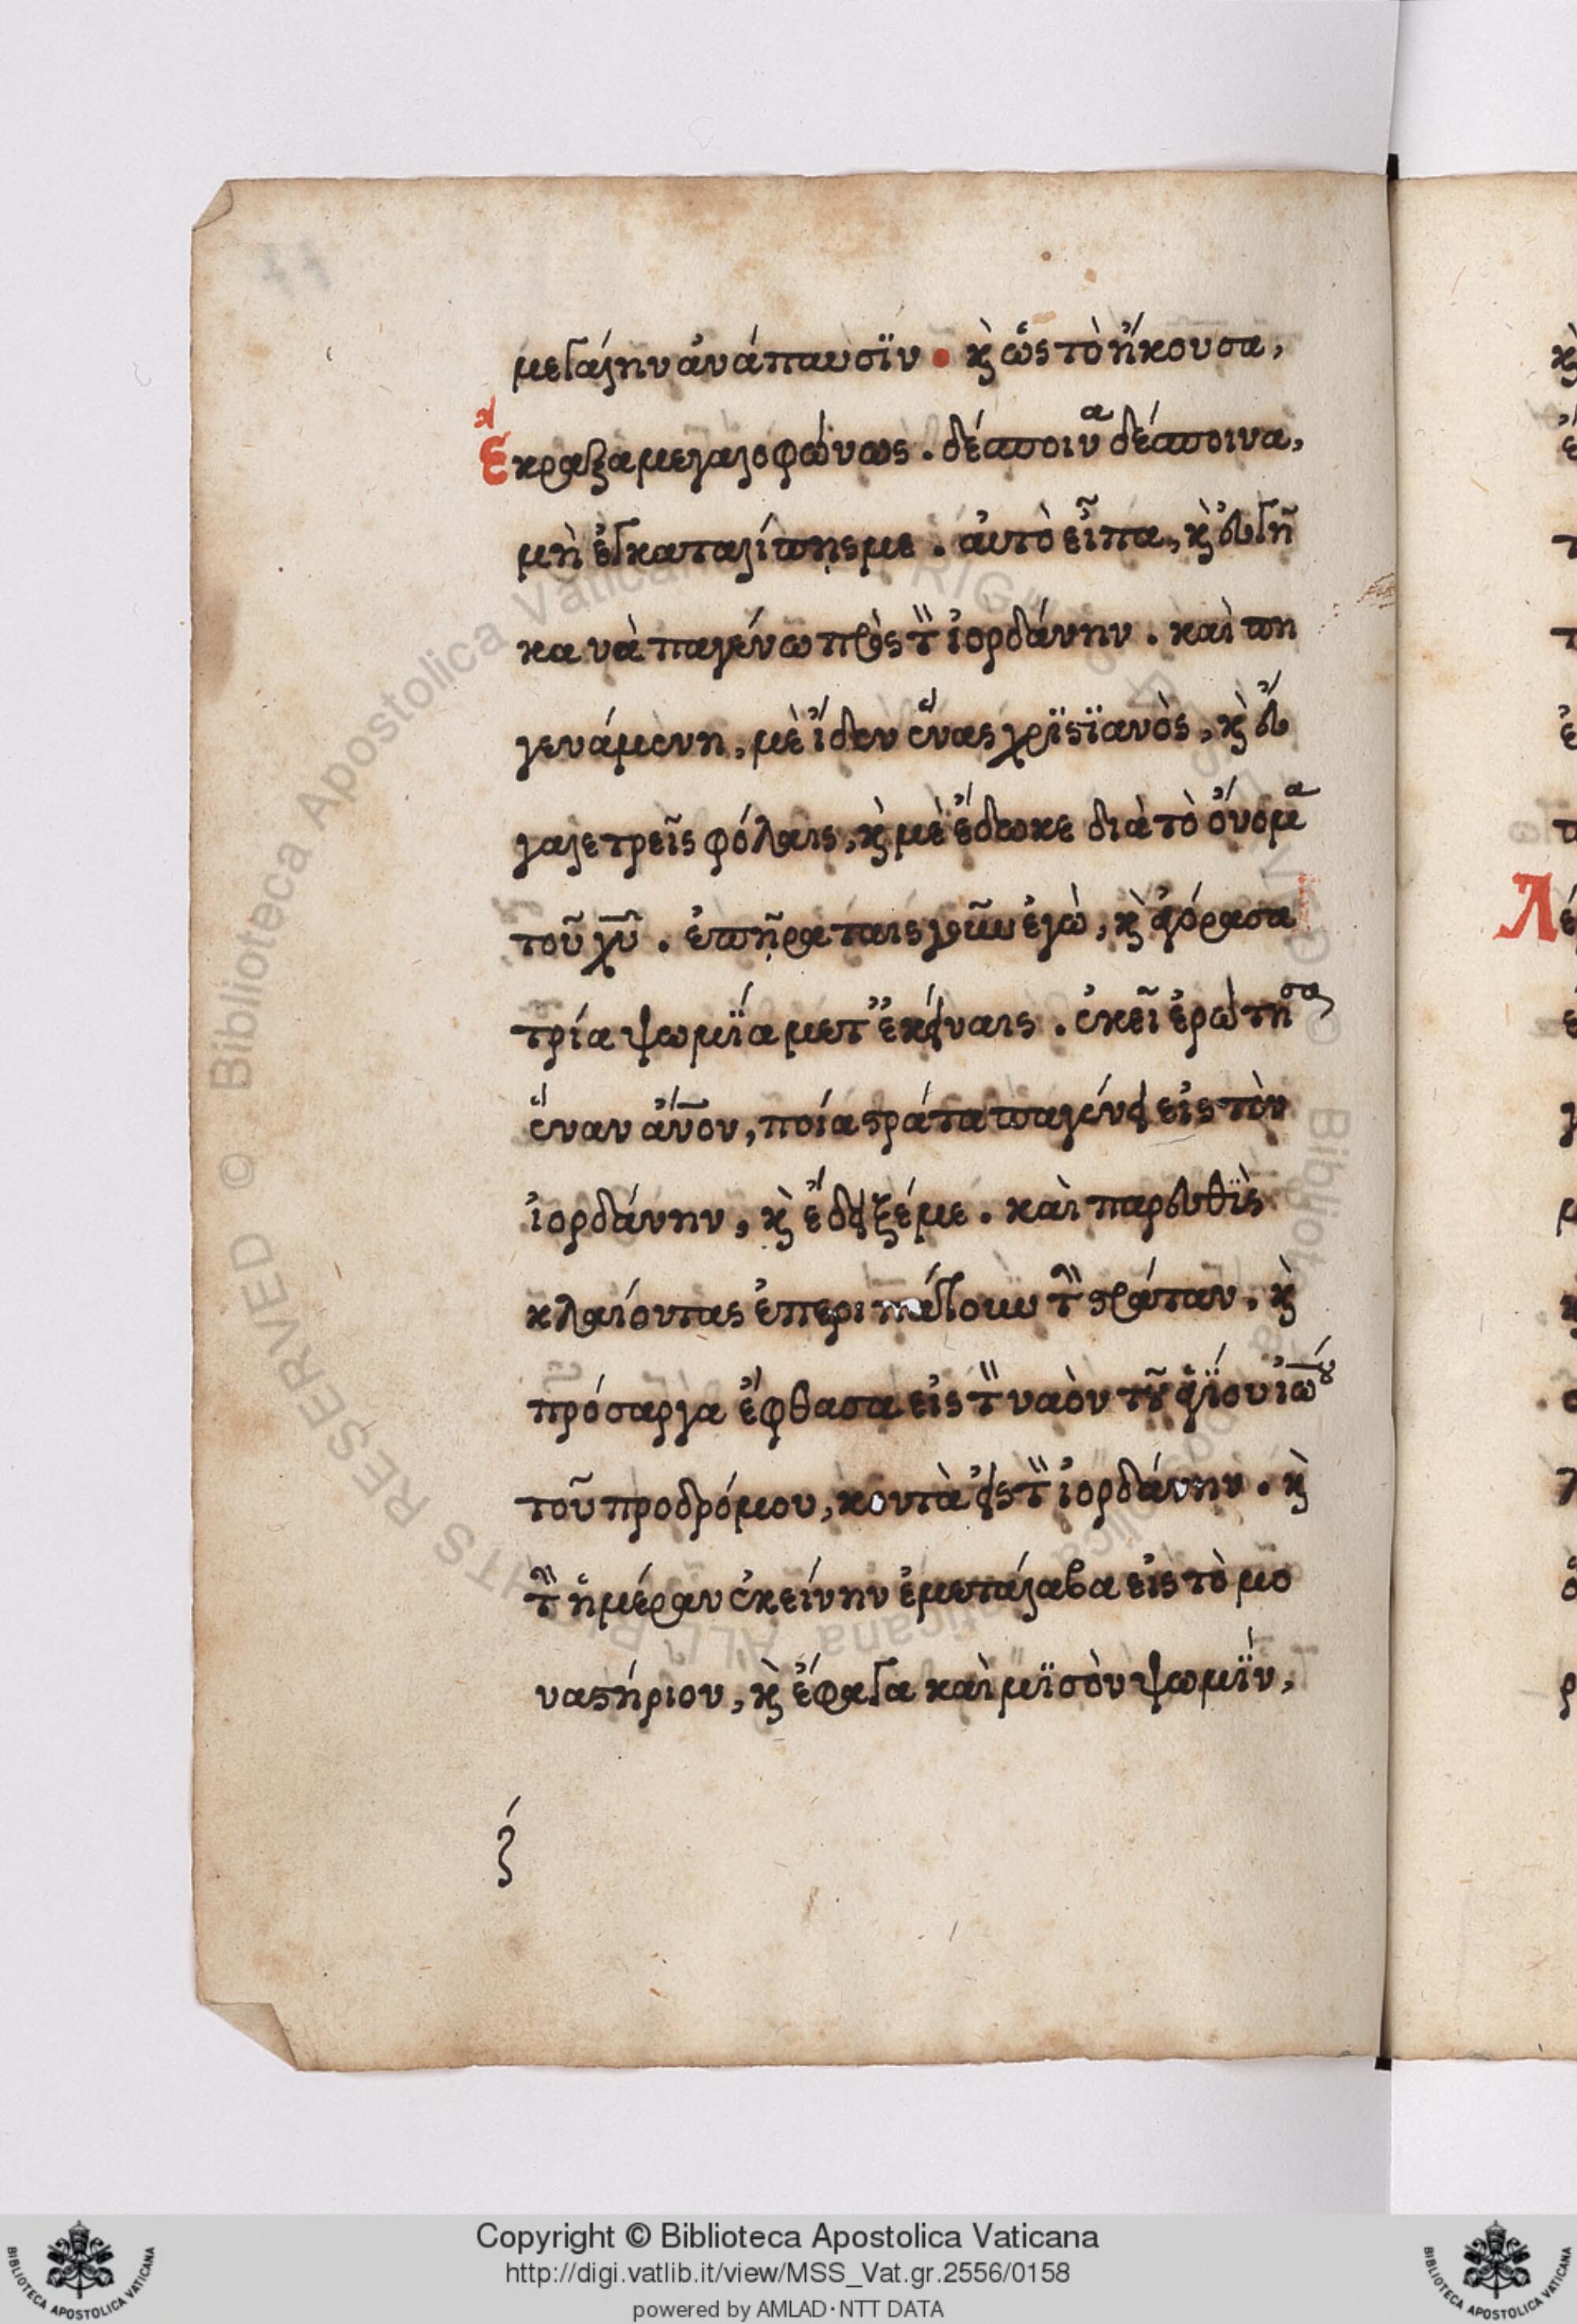 μεγάλην ἀνάπαυσϊν · κ̀ ὡς τὸ ἤκουσα,
ἔκραξα μεγαλοφώνως . δέσποινα δέσποινα,
μὴ ἐγκαταλίπῃς με . αὐτὸ εἶπα, κ̀ εὐγῆ
κα νὰ παγένω πρὸς τὸν ἰορδάνην . καὶ πη
γενάμενη, μὲ ἴδεν ἕνας χρϊστϊανὸς, κ̀ εὔ
γαλε τρεῖς φόλαις, κ̀ μὲ ἔδωκε διὰ τὸ ὄνομα
τοῦ χῦ . ἐπῆρα ταις γοῦν ἐγὼ, κ̀ ἀγόρασα
τρία ψωμϊά μετ ἐκείναις . ἐκεῖ ἐρώτησα
ἕναν ἄνον, ποία στράτα παγένει εἰς τὸν
ἰορδάνην, κ̀ ἔδειξέ με . καὶ παρευθϊς
κλαίοντας ἐπεριπάτουν τὴν στράταν . κ̀
πρόσαργα ἔφθασα εἰς τὸν ναὸν τοῦ ἁγϊου ἰωου
τοῦ προδρόμου, κοντὰ εἰς τὸν ἰορδάνην . κ̀
τὴν ἡμέραν ἐκείνην ἐμετάλαβα εἰς τὸ μο
ναστήριον, κ̀ ἔφαγα καὶ μϊσὸν ψωμϊν,
ξ
Copyright © Biblioteca Apostolica Vaticana
http://digi.vatlib.it/view/MSS_Vat.gr.2556/0158
powered by AMLAD·NTT DATA